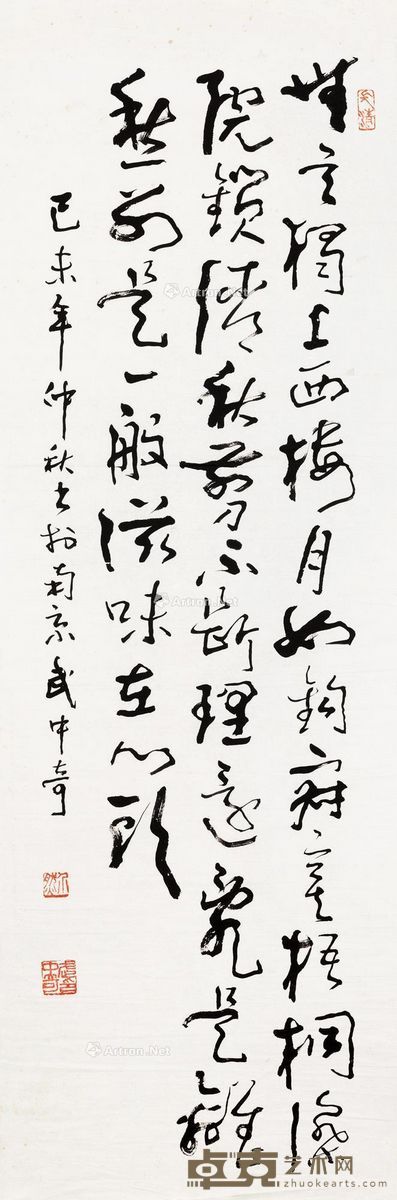 無言獨上西樓月如鈎寂寞梧桐深
院鎖清秋剪不斷理還亂是離
愁別是一般滋味在心頭
己未年仲秋書於南京武中奇
Artron.Net
Artron.Net
Artron.Net
卓克艺术网
www.zhuokearts.com